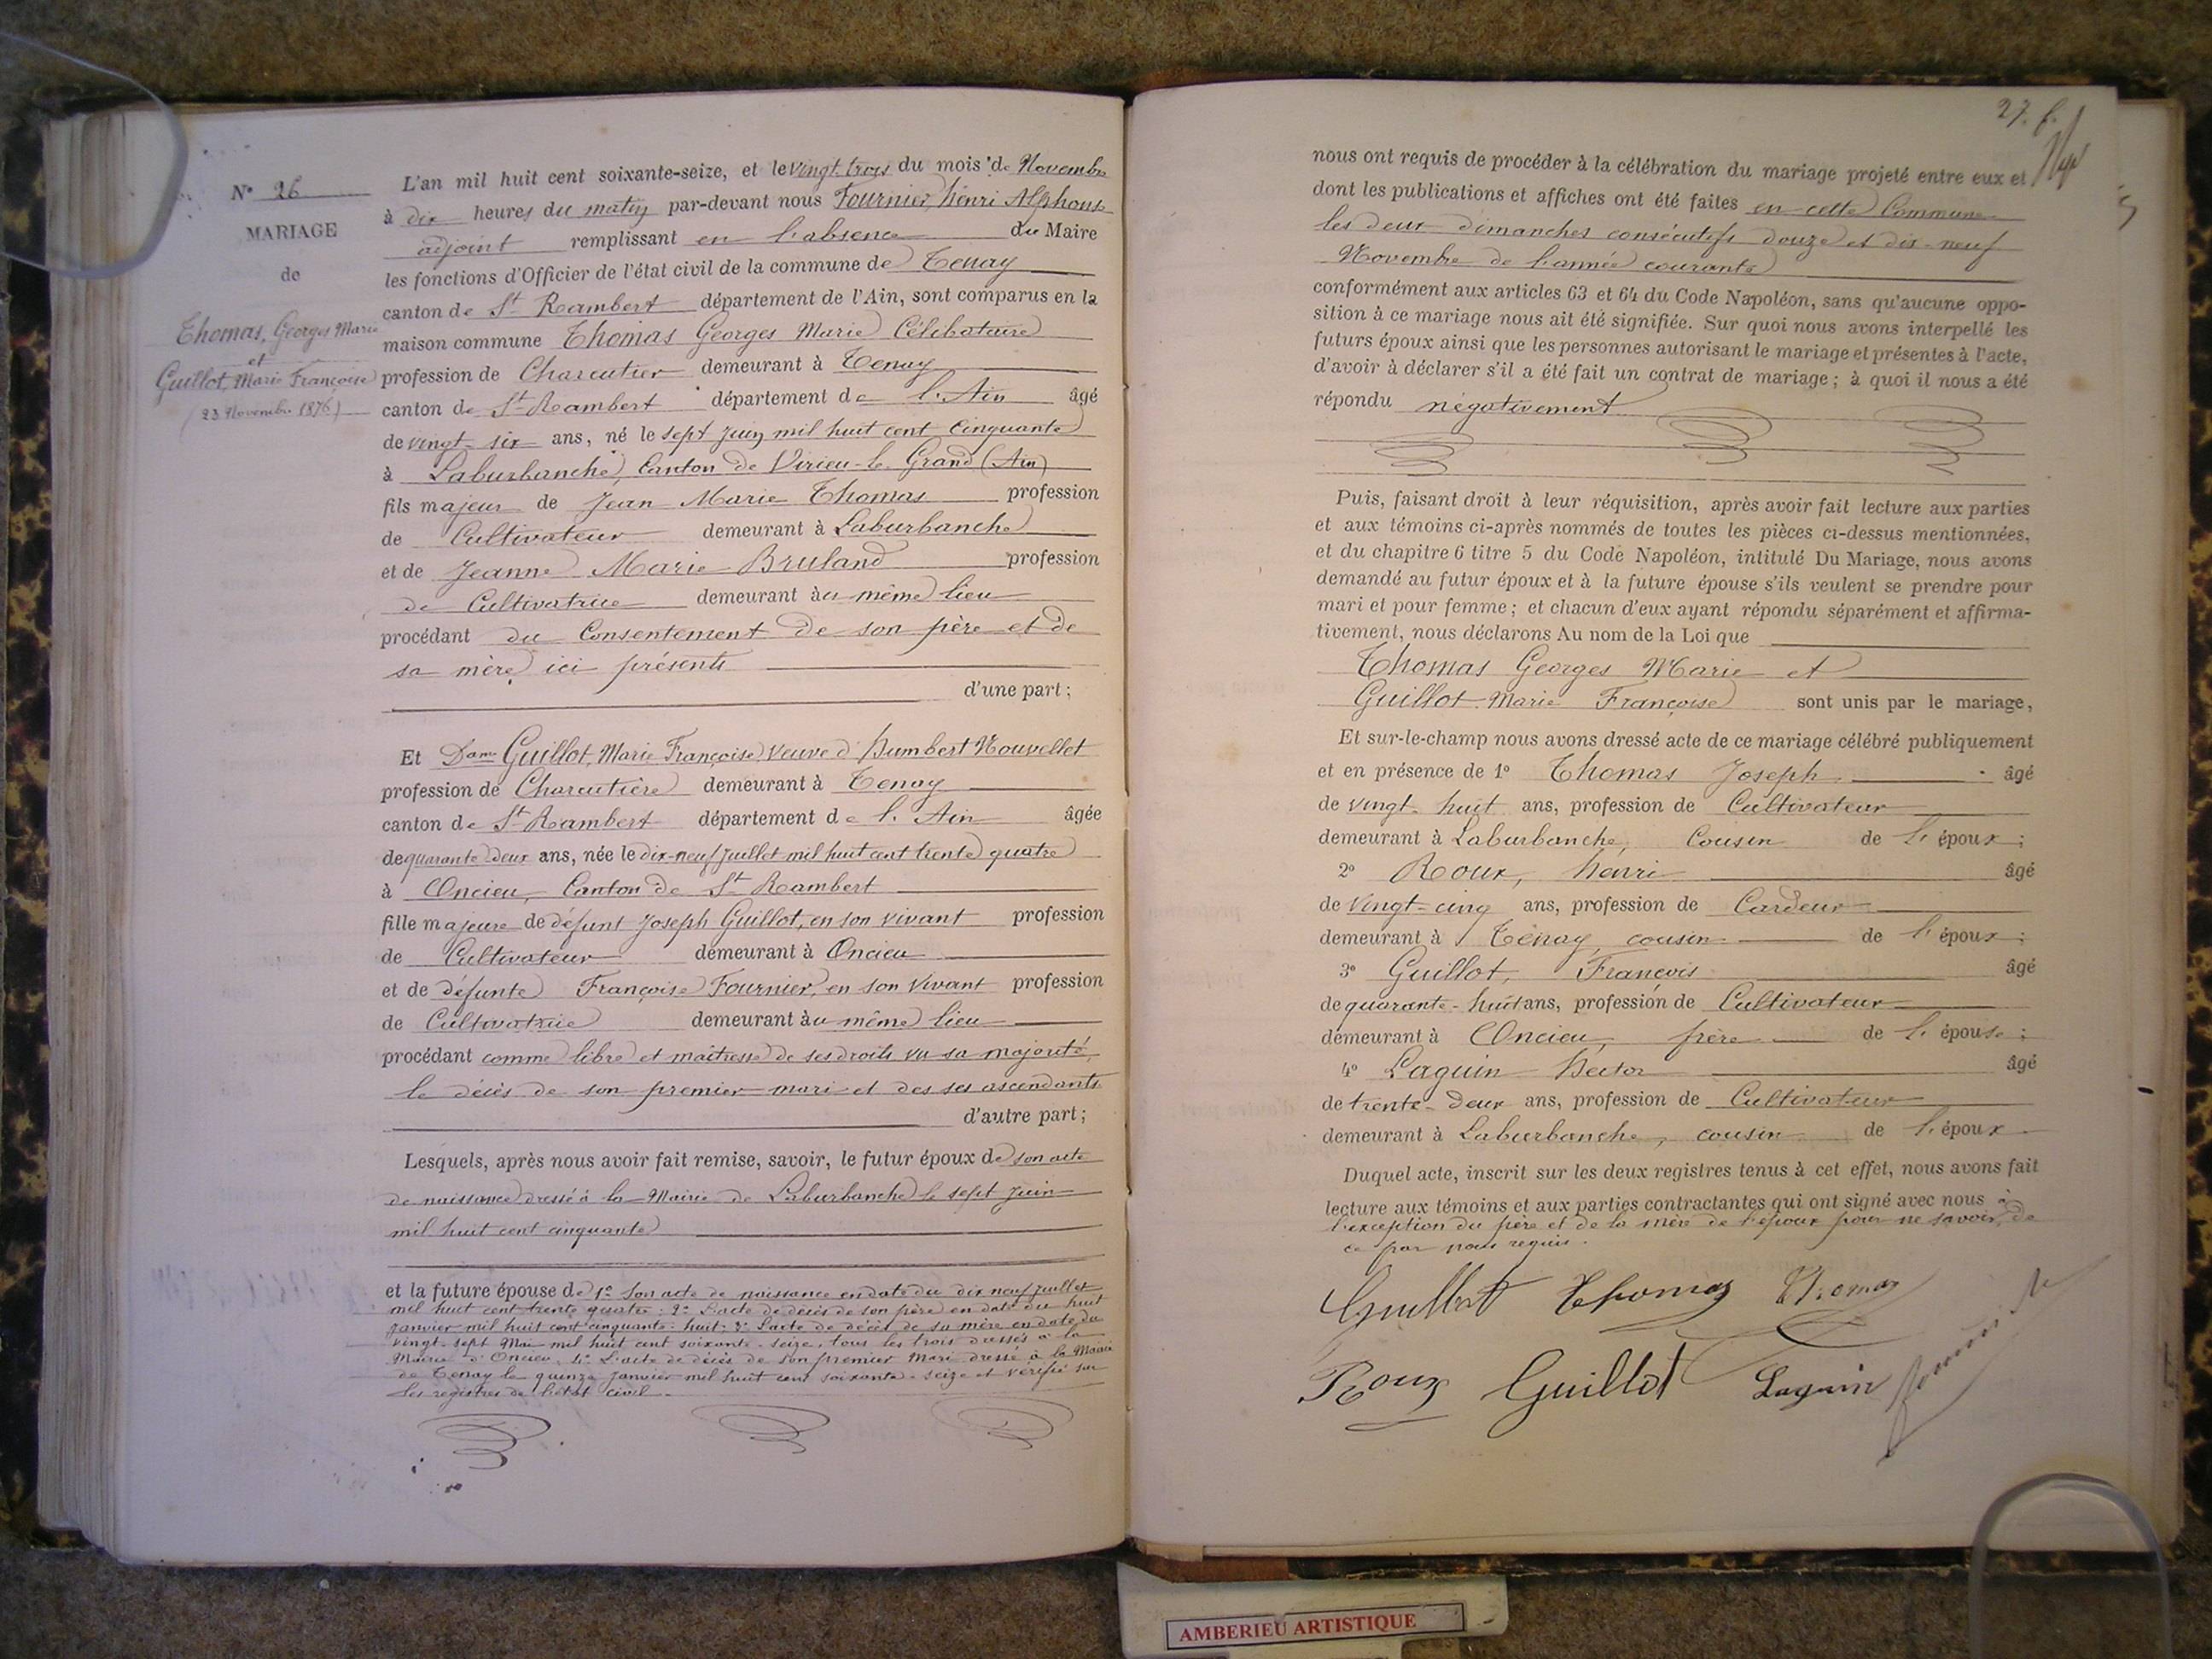 N° 26
MARIAGE
de
Thomas, Georges Marie
et
Guillot, Marie Françoise
(23 Novembre 1876)
L'an mil huit cent soixante-seize, et le vingt trois du mois de Novembre
à dix heures du matin par-devant nous Fournier, henri Alphonse
adjoint remplissant en l'absence du Maire
les fonctions d'Officier de l'état civil de la commune de Tenay
canton de St Rambert département de l'Ain, sont comparus en la
maison commune Thomas Georges Marie Célibataire
profession de Charcutier demeurant à Tenay
canton de St Rambert département de l'Ain âgé
de vingt-six ans, né le sept juin mil huit cent cinquante
à Laburbanche, Canton de Virieu-le-Grand (Ain)
fils majeur de Jean Marie Thomas profession
de Cultivateur demeurant à Laburbanche
et de Jeanne Marie Bruland profession
de Cultivatrice demeurant au même lieu
procédant du Consentement de son père et de
sa mère ici présents
d'une part;
Et Dame Guillot, Marie Françoise, veuve d'Humbert Nouvellet
profession de Charcutière demeurant à Tenay
canton de St Rambert département de l'Ain âgée
de quarante deux ans, née le dix-neuf juillet mil huit cent trente quatre
à Oncieu, Canton de St Rambert
fille majeure de défunt Joseph Guillot, en son vivant profession
de Cultivateur demeurant à Oncieu
et de défunte Françoise Fournier, en son vivant profession
de Cultivatrice demeurant au même lieu
procédant comme libre et maîtresse de ses droits vu sa majorité,
le décès de son premier mari et des ses ascendants
d'autre part;
Lesquels, après nous avoir fait remise, savoir, le futur époux de son acte
de naissance dressé à la Mairie de Laburbanche le sept juin
mil huit cent cinquante
et la future épouse de 1° Son acte de naissance en date du dix neuf juillet
mil huit cent trente quatre: 2° L'acte de décès de son père en date du huit
janvier mil huit cent cinquante-huit; 3° L'acte de décès de sa mère en date du
vingt-sept Mai mil huit cent soixante-seize, tous les trois dressés à la
Mairie d'Oncieu, 4° L'acte de décès de son premier Mari dressé à la Mairie
de Tenay le quinze janvier mil huit cent soixante-seize et vérifié sur
les registres de l'état civil.
27. f.
nous ont requis de procéder à la célébration du mariage projeté entre eux et
dont les publications et affiches ont été faites en cette Commune
les deux dimanches consécutifs douze et dix-neuf
Novembre de l'année courante
conformément aux articles 63 et 64 du Code Napoléon, sans qu'aucune oppo-
sition à ce mariage nous ait été signifiée. Sur quoi nous avons interpellé les
futurs époux ainsi que les personnes autorisant le mariage et présentes à l'acte,
d'avoir à déclarer s'il a été fait un contrat de mariage; à quoi il nous a été
répondu négativement
Puis, faisant droit à leur réquisition, après avoir fait lecture aux parties
et aux témoins ci-après nommés de toutes les pièces ci-dessus mentionnées,
et du chapitre 6 titre 5 du Code Napoléon, intitulé Du Mariage, nous avons
demandé au futur époux et à la future épouse s'ils veulent se prendre pour
mari et pour femme; et chacun d'eux ayant répondu séparément et affirma-
tivement, nous déclarons Au nom de la Loi que
Thomas Georges Marie et
Guillot Marie Françoise sont unis par le mariage,
Et sur-le-champ nous avons dressé acte de ce mariage célébré publiquement
et en présence de 1° Thomas Joseph âgé
de vingt-huit ans, profession de Cultivateur
demeurant à Laburbanche, Cousin de l'époux;
2° Roux, henri âgé
de vingt-cinq ans, profession de Cardeur
demeurant à Tenay, cousin de l'époux;
3° Guillot, François âgé
de quarante-huit ans, profession de Cultivateur
demeurant à Oncieu, frère de l'épouse;
4° Laguin Hector âgé
de trente-deux ans, profession de Cultivateur
demeurant à Laburbanche, cousin de l'époux
Duquel acte, inscrit sur les deux registres tenus à cet effet, nous avons fait
lecture aux témoins et aux parties contractantes qui ont signé avec nous à
l'exception du père et de la mère de l'époux pour ne savoir, de
ce par nous requis.
Guillot Thomas Thomas
Roux Guillot Laguin
AMBERIEU ARTISTIQUE